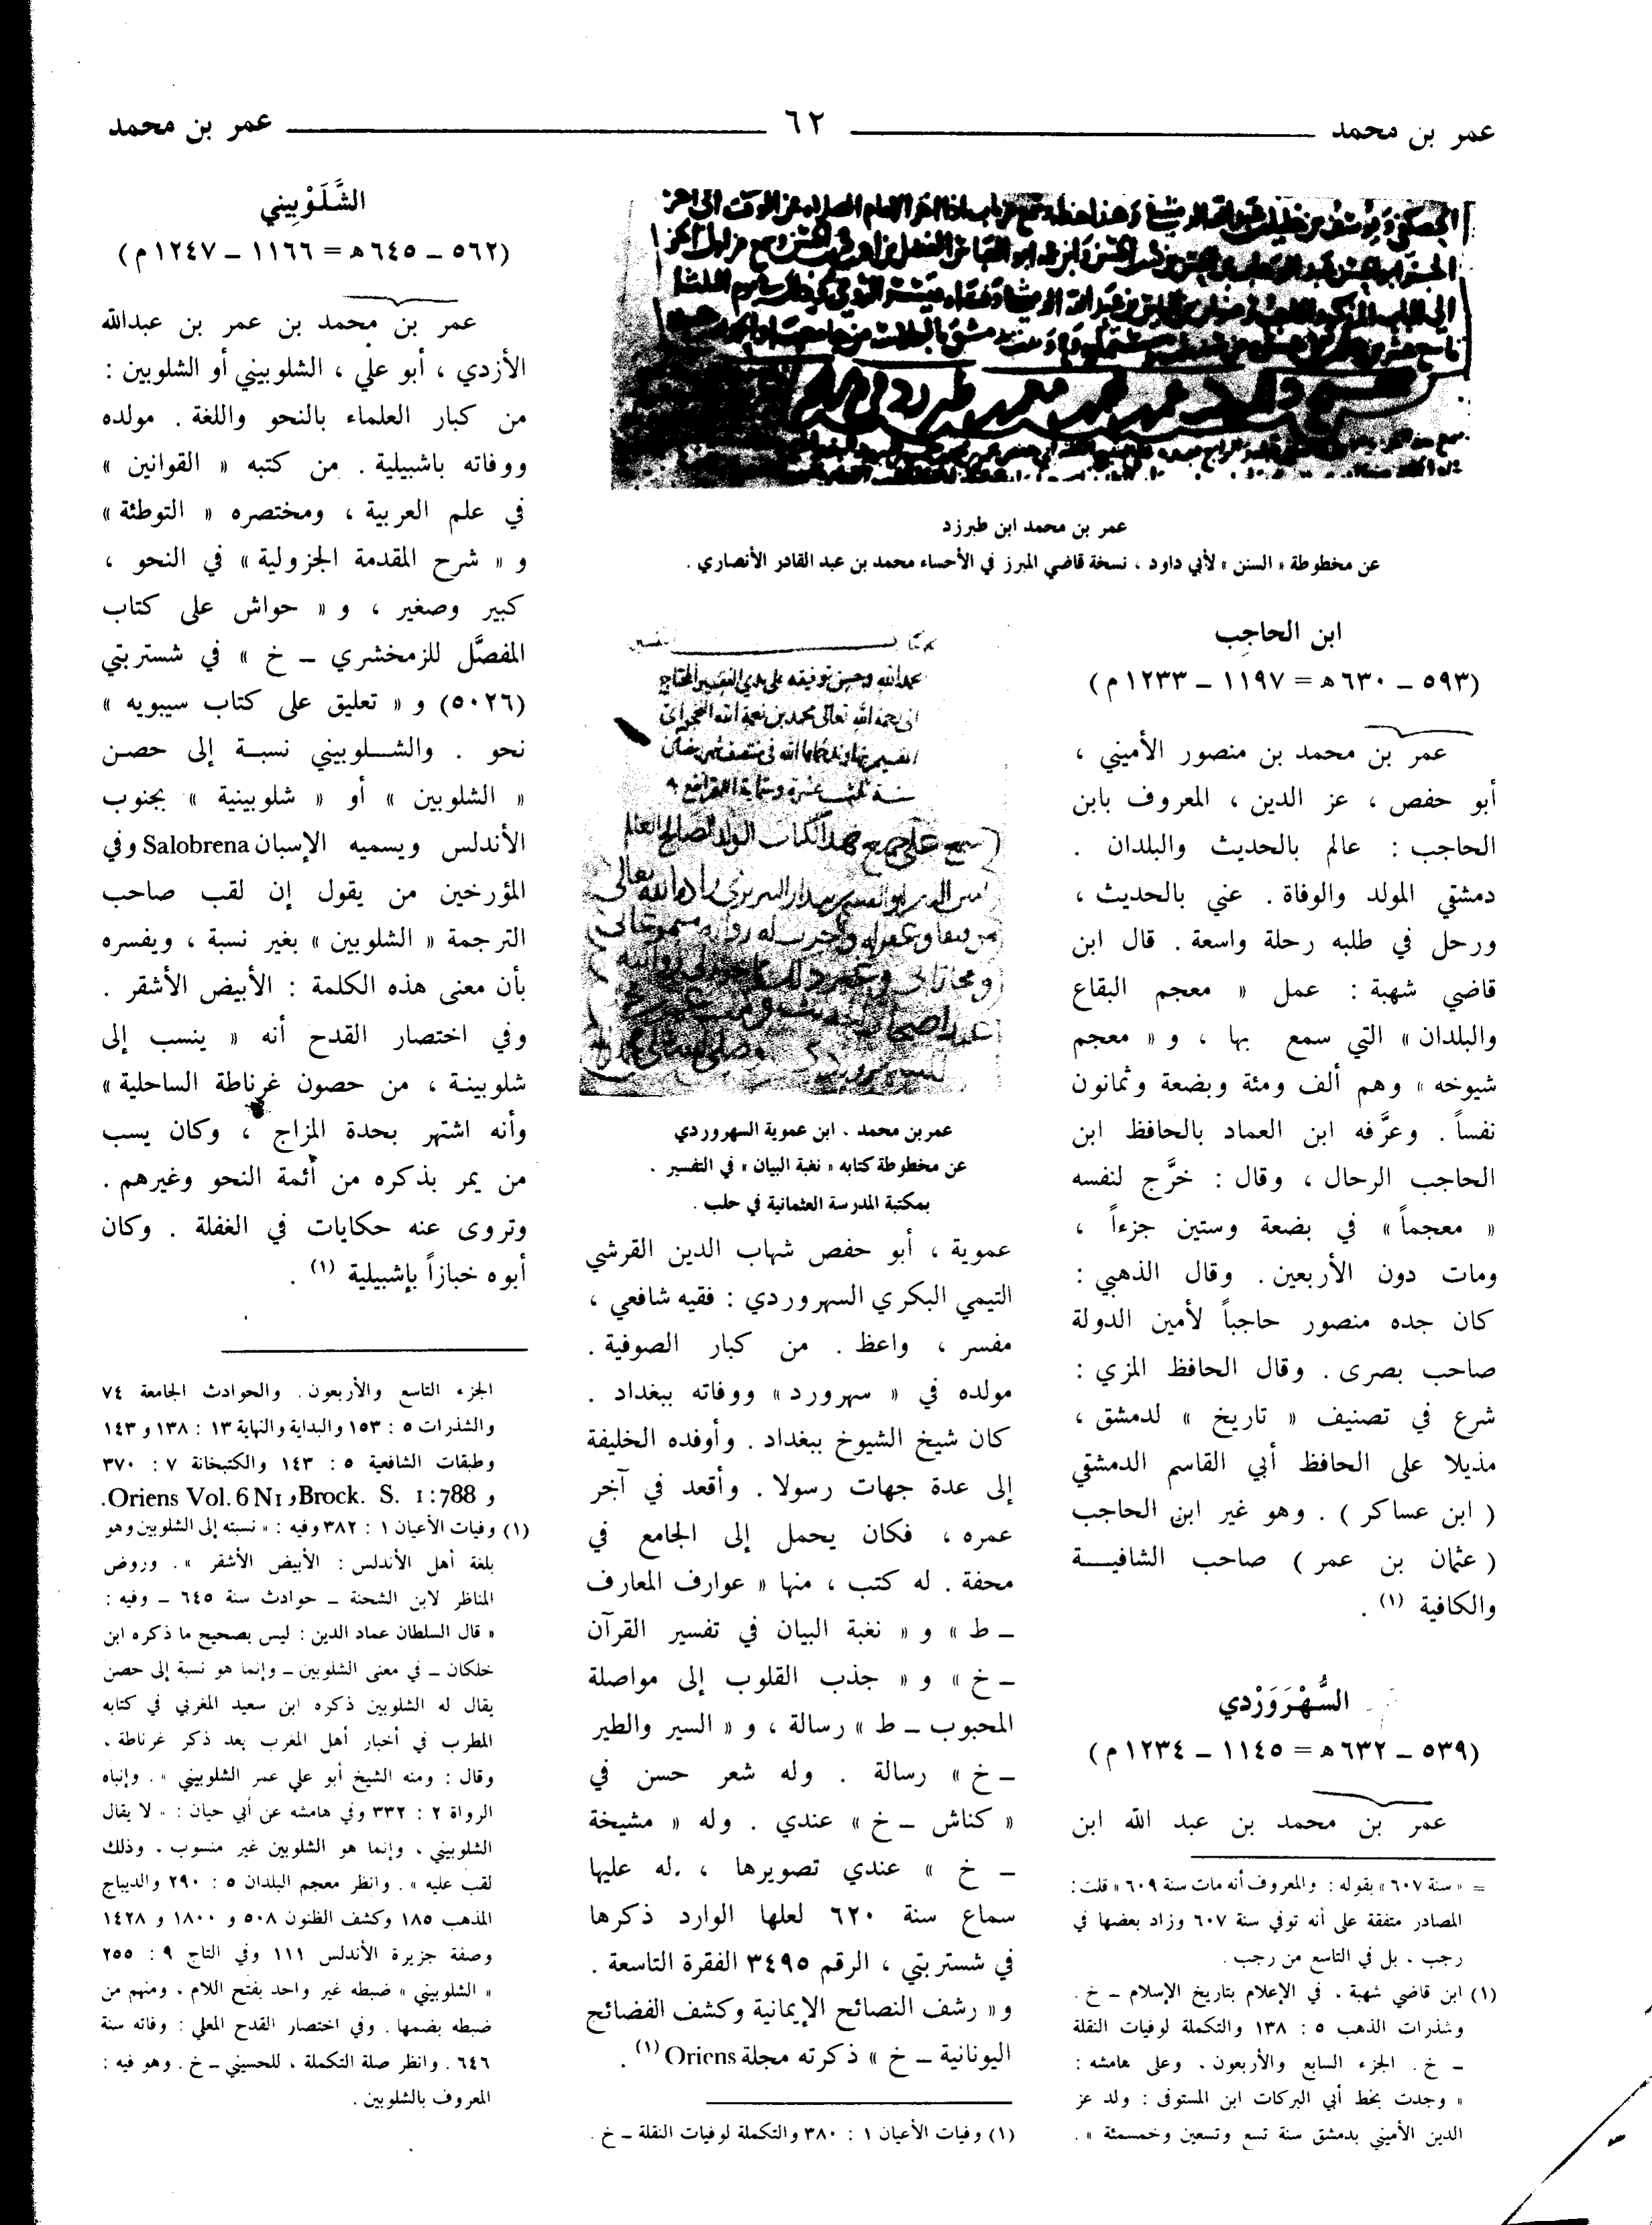 عمر بن محمد
٦٢
عمر بن محمد
عمر بن محمد ابن طبرزد
عن مخطوطة « السنن » لأبي داود ، نسخة قاضي المبرز في الأحساء محمد بن عبد القادر الأنصاري .
ابن الحاجِب
(٥٩٣ ــ ٦٣٠ هـ = ١١٩٧ ــ ١٢٣٣ م)
عمر بن محمد بن منصور الأميني ،
أبو حفص ، عز الدين ، المعروف بابن
الحاجب : عالم بالحديث والبلدان .
دمشقي المولد والوفاة . عني بالحديث ،
ورحل في طلبه رحلة واسعة . قال ابن
قاضي شهبة : عمل « معجم البقاع
والبلدان » التي سمع بها ، و « معجم
شيوخه » وهم ألف ومئة وبضعة وثمانون
نفساً . وعرَّفه ابن العماد بالحافظ ابن
الحاجب الرحال ، وقال : خرَّج لنفسه
« معجماً » في بضعة وستين جزءاً ،
ومات دون الأربعين . وقال الذهبي :
كان جده منصور حاجباً لأمين الدولة
صاحب بصرى . وقال الحافظ المزي :
شرع في تصنيف « تاريخ » لدمشق ،
مذيلا على الحافظ أبي القاسم الدمشقي
( ابن عساكر ) . وهو غير ابن الحاجب
( عثمان بن عمر ) صاحب الشافيــة
والكافية (١) .
السُّهْرَوَرْدي
(٥٣٩ ــ ٦٣٢ هـ = ١١٤٥ ــ ١٢٣٤ م)
عمر بن محمد بن عبد الله ابن
= « سنة ٦٠٧ » بقوله : والمعروف أنه مات سنة ٦٠٩ « قلت :
المصادر متفقة على أنه توفي سنة ٦٠٧ وزاد بعضها في
رجب ، بل في التاسع من رجب .
(١) ابن قاضي شهبة ، في الإعلام بتاريخ الإسلام ــ خ .
وشذرات الذهب ٥ : ١٣٨ والتكملة لوفيات النقلة
ــ خ . الجزء السابع والأربعون . وعلى هامشه :
« وجدت بخط أبي البركات ابن المستوفى : ولد عز
الدين الأميني بدمشق سنة تسع وتسعين وخمسمئة » .
عمر بن محمد . ابن عموية السهروردي
عن مخطوطة كتابه « نغبة البيان » في التفسير .
بمكتبة المدرسة العثمانية في حلب .
عموية ، أبو حفص شهاب الدين القرشي
التيمي البكري السهروردي : فقيه شافعي ،
مفسر ، واعظ . من كبار الصوفية .
مولده في « سهرورد » ووفاته ببغداد .
كان شيخ الشيوخ ببغداد . وأوفده الخليفة
إلى عدة جهات رسولا . وأقعد في آخر
عمره ، فكان يحمل إلى الجامع في
محفة . له كتب ، منها « عوارف المعارف
ــ ط » و « نغبة البيان في تفسير القرآن
ــ خ » و « جذب القلوب إلى مواصلة
المحبوب ــ ط » رسالة ، و « السير والطير
ــ خ » رسالة . وله شعر حسن في
« كناش ــ خ » عندي . وله « مشيخة
ــ خ » عندي تصويرها ، له عليها
سماع سنة ٦٢٠ لعلها الوارد ذكرها
في شستربتي ، الرقم ٣٤٩٥ الفقرة التاسعة .
و « رشف النصائح الإيمانية وكشف الفضائح
اليونانية ــ خ » ذكرته مجلة Oriens (١) .
(١) وفيات الأعيان ١ : ٣٨٠ والتكملة لوفيات النقلة ــ خ .
الشَّلَوْبِيني
(٥٦٢ ــ ٦٤٥ هـ = ١١٦٦ ــ ١٢٤٧ م)
عمر بن محمد بن عمر بن عبدالله
الأزدي ، أبو علي ، الشلوبيني أو الشلوبين :
من كبار العلماء بالنحو واللغة . مولده
ووفاته باشبيلية . من كتبه « القوانين »
في علم العربية ، ومختصره « التوطئة »
و « شرح المقدمة الجزولية » في النحو ،
كبير وصغير ، و « حواش على كتاب
المفصَّل للزمخشري ــ خ » في شستربتي
(٥٠٢٦) و « تعليق على كتاب سيبويه »
نحو . والشــلوبيني نسبــة إلى حصن
« الشلوبين » أو « شلوبينية » بجنوب
الأندلس ويسميه الإسبان Salobrena وفي
المؤرخين من يقول إن لقب صاحب
الترجمة « الشلوبين » بغير نسبة ، ويفسره
بأن معنى هذه الكلمة : الأبيض الأشقر .
وفي اختصار القدح أنه « ينسب إلى
شلوبينة ، من حصون غرناطة الساحلية »
وأنه اشتهر بحدة المزاج ، وكان يسب
من يمر بذكره من أئمة النحو وغيرهم .
وتروى عنه حكايات في الغفلة . وكان
أبوه خبازاً بإشبيلية (١) .
الجزء التاسع والأربعون . والحوادث الجامعة ٧٤
والشذرات ٥ : ١٥٣ والبداية والنهاية ١٣ : ١٣٨ و ١٤٣
وطبقات الشافعية ٥ : ١٤٣ والكتبخانة ٧ : ٣٧٠
و Brock. S. 1:788 و Oriens Vol. 6 N1.
(١) وفيات الأعيان ١ : ٣٨٢ وفيه : « نسبته إلى الشلوبين وهو
بلغة أهل الأندلس : الأبيض الأشقر » . وروض
المناظر لابن الشحنة ــ حوادث سنة ٦٤٥ ــ وفيه :
« قال السلطان عماد الدين : ليس بصحيح ما ذكره ابن
خلكان ــ في معنى الشلوبين ــ وإنما هو نسبة إلى حصن
يقال له الشلوبين ذكره ابن سعيد المغربي في كتابه
المطرب في أخبار أهل المغرب بعد ذكر غرناطة ،
وقال : ومنه الشيخ أبو علي عمر الشلوبيني » . وإنباه
الرواة ٢ : ٣٣٢ وفي هامشه عن أبي حيان : « لا يقال
الشلوبيني ، وإنما هو الشلوبين غير منسوب ، وذلك
لقب عليه » . وانظر معجم البلدان ٥ : ٢٩٠ والديباج
المذهب ١٨٥ وكشف الظنون ٥٠٨ و ١٨٠٠ و ١٤٢٨
وصفة جزيرة الأندلس ١١١ وفي التاج ٩ : ٢٥٥
« الشلوبيني » ضبطه غير واحد بفتح اللام ، ومنهم من
ضبطه بضمها . وفي اختصار القدح المعلي : وفاته سنة
٦٤٦ . وانظر صلة التكملة ، للحسيني ــ خ . وهو فيه :
المعروف بالشلوبين .